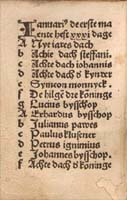 Januari9 de erste ma
ente hest xxxi dage
A Nye iares dach
b Achte dach steffani.
c Achte dach iohannis
d Achte dach d kynder
e Symeon monnyck.
f De hilge dre köninge
g Lucius bysschop
A Erhardus bysschop
b Julianus pawes
c Paulus klusener
d Petrus ignimius
e Johannes bysschop.
f Achte dach d köninge